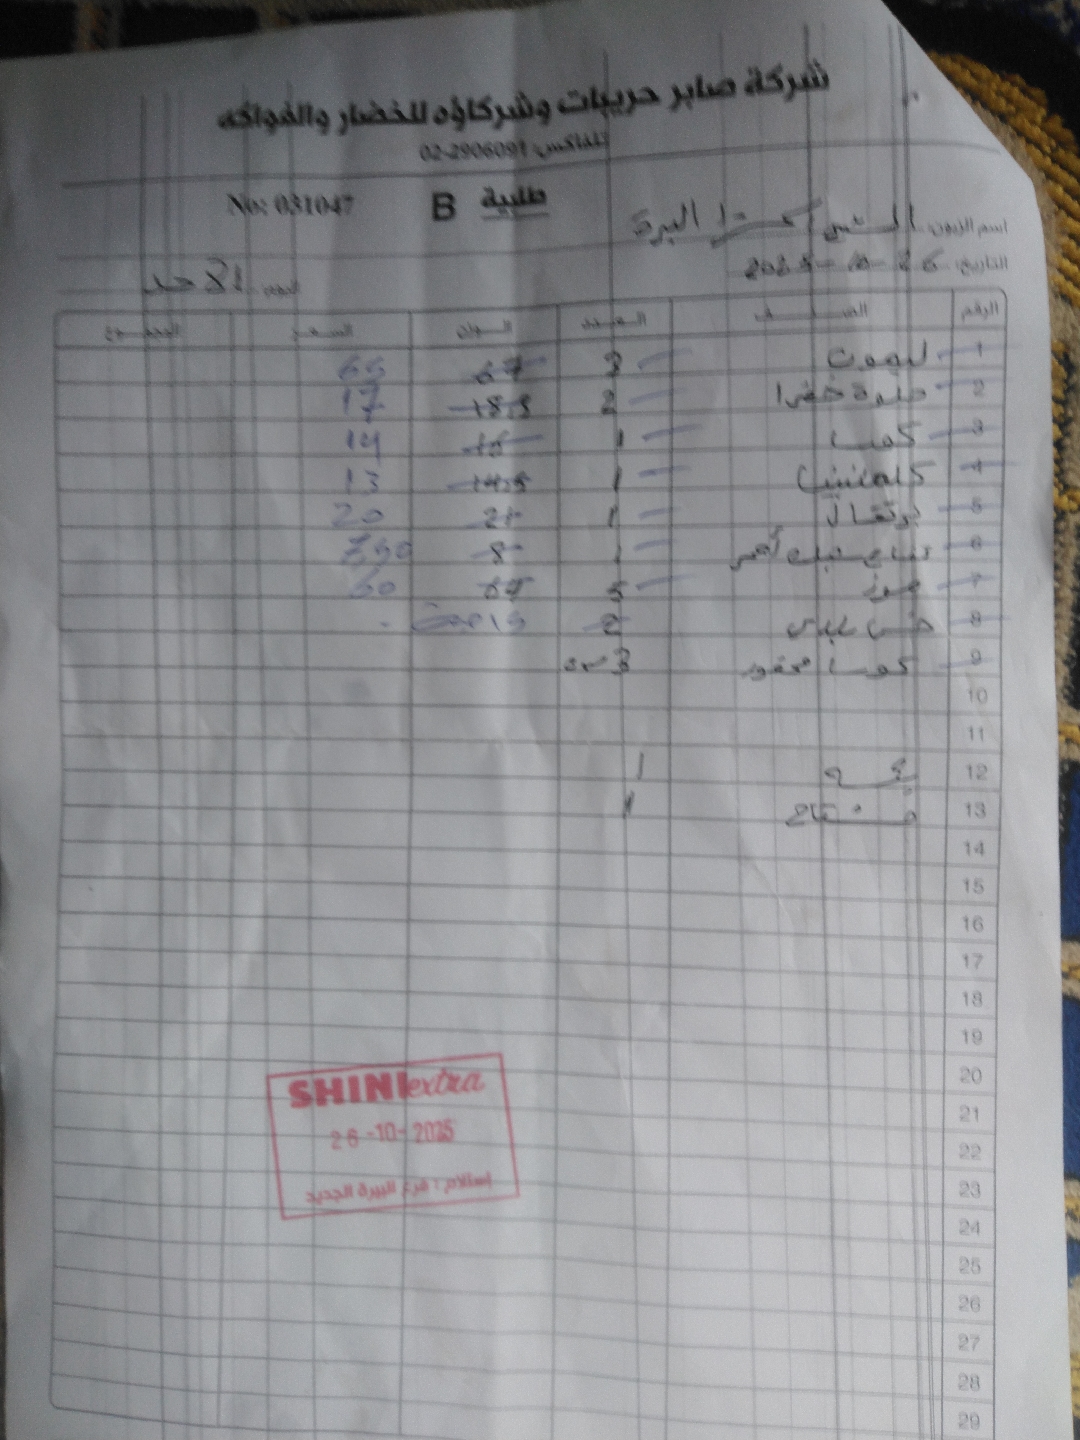 شركة صابر حريبات وشركاؤه للخضار والفواكه
تلفاكس: 02-2906091
No: 031047 B طلبية
اسم الزبون: الشني اكسترا البيرة
التاريخ: 26-10-2025 اليوم: الأحد
الرقم الصنف العدد الوزن السعر المجموع
1 ليمون 3 67 65
2 حلوة خضرا 2 18.5 17
3 كوسا 1 15 14
4 كلمنتينا 1 14.5 13
5 برتقال 1 21 20
6 1 8
7 موز 5 65 60
8 خس بلدي 2
9 كوسا محفور 3
10
11
12 1
13 نعنع 1
14
15
16
17
18
19
20
21
22
23
24
25
26
27
28
29
SHINI extra
26-10-2025
إستلام: فرع البيرة الجديد